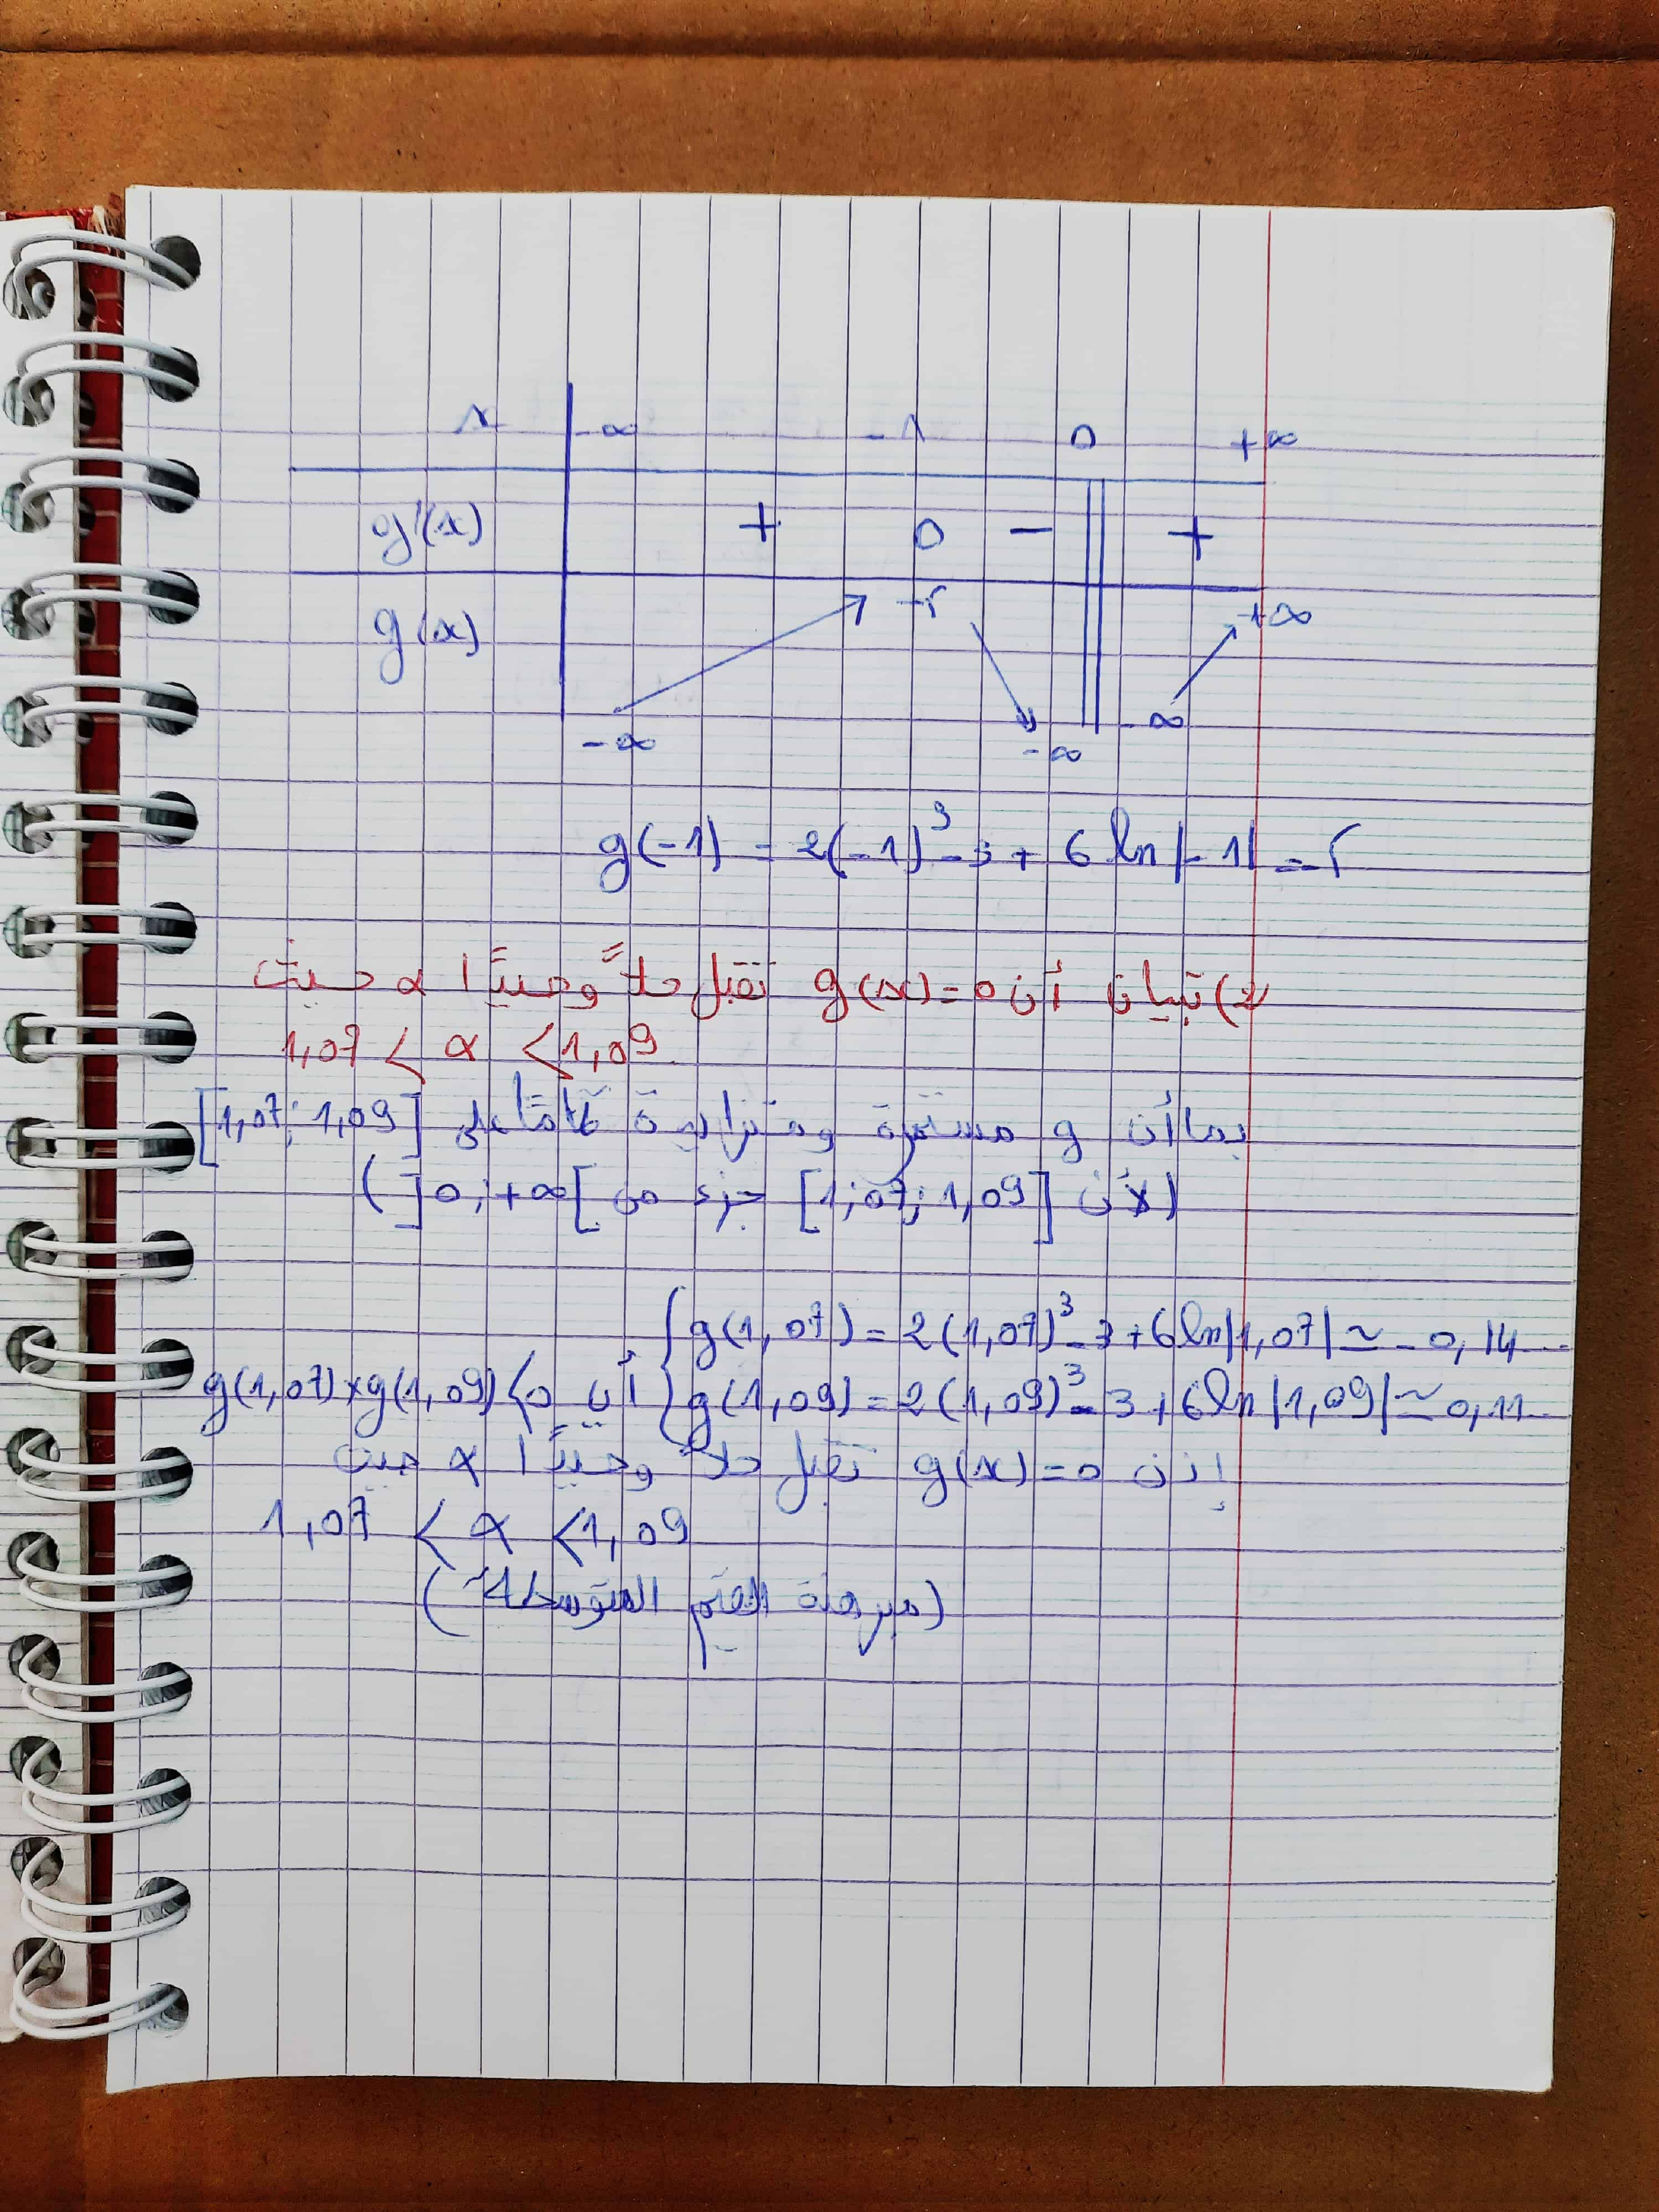 x -∞ -1 0 +∞
g'(x) + 0 - +
g(x) -∞ -5 -∞ -∞ +∞
g(-1) = 2(-1)³-3 + 6 ln|-1| = -5
2) تبيان أن g(x)=0 تقبل حلاً وحيدًا α حيث
1,07 < α < 1,09
بما أن g مستمرة ومتزايدة تمامًا على [1,07; 1,09]
(لأن [1,07; 1,09] جزء من ]0;+∞[)
g(1,07) = 2(1,07)³-3+6ln|1,07| ≃ -0,14...
g(1,09) = 2(1,09)³-3+6ln|1,09| ≃ 0,11...
أي أن g(1,07)×g(1,09)<0
إذن g(x)=0 تقبل حلاً وحيدًا α حيث
1,07 < α < 1,09
(مبرهنة القيم المتوسطة)